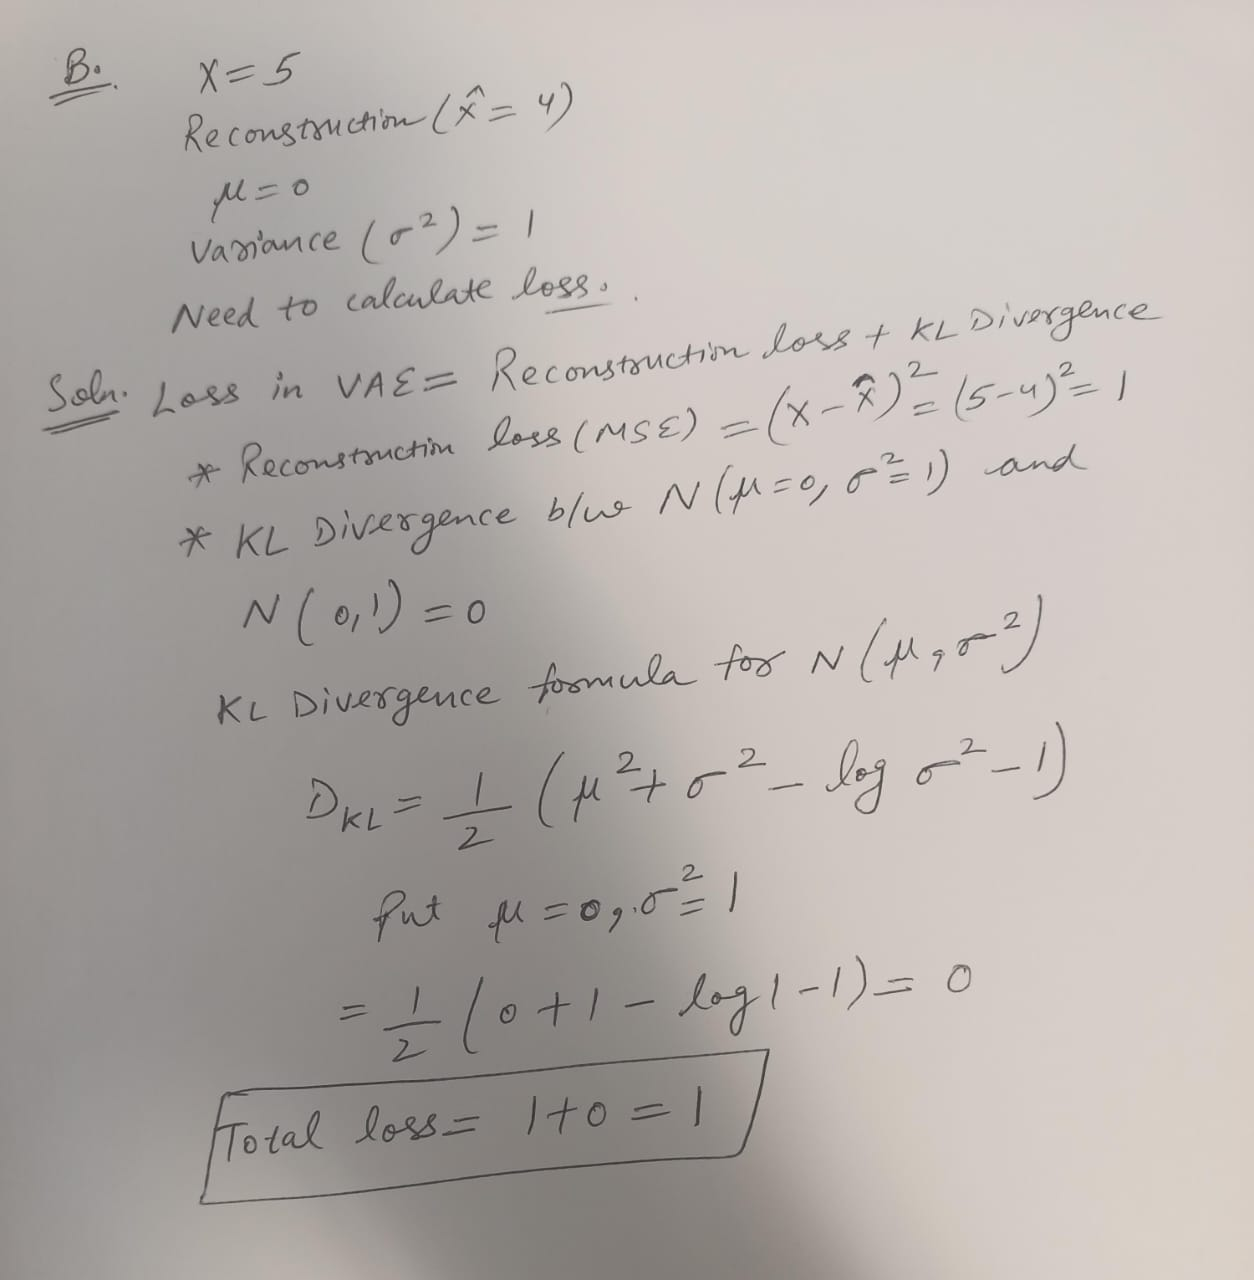 B. X = 5
Reconstruction (x̂ = 4)
μ = 0
Variance (σ²) = 1
Need to calculate loss.
Soln. Loss in VAE = Reconstruction loss + KL Divergence
* Reconstruction loss (MSE) = (x - x̂)² = (5-4)² = 1
* KL Divergence b/w N(μ=0, σ²=1) and
N(0,1) = 0
KL Divergence formula for N(μ, σ²)
D_KL = 1/2 (μ² + σ² - log σ² - 1)
Put μ = 0, σ² = 1
= 1/2 (0 + 1 - log 1 - 1) = 0
Total loss = 1+0 = 1